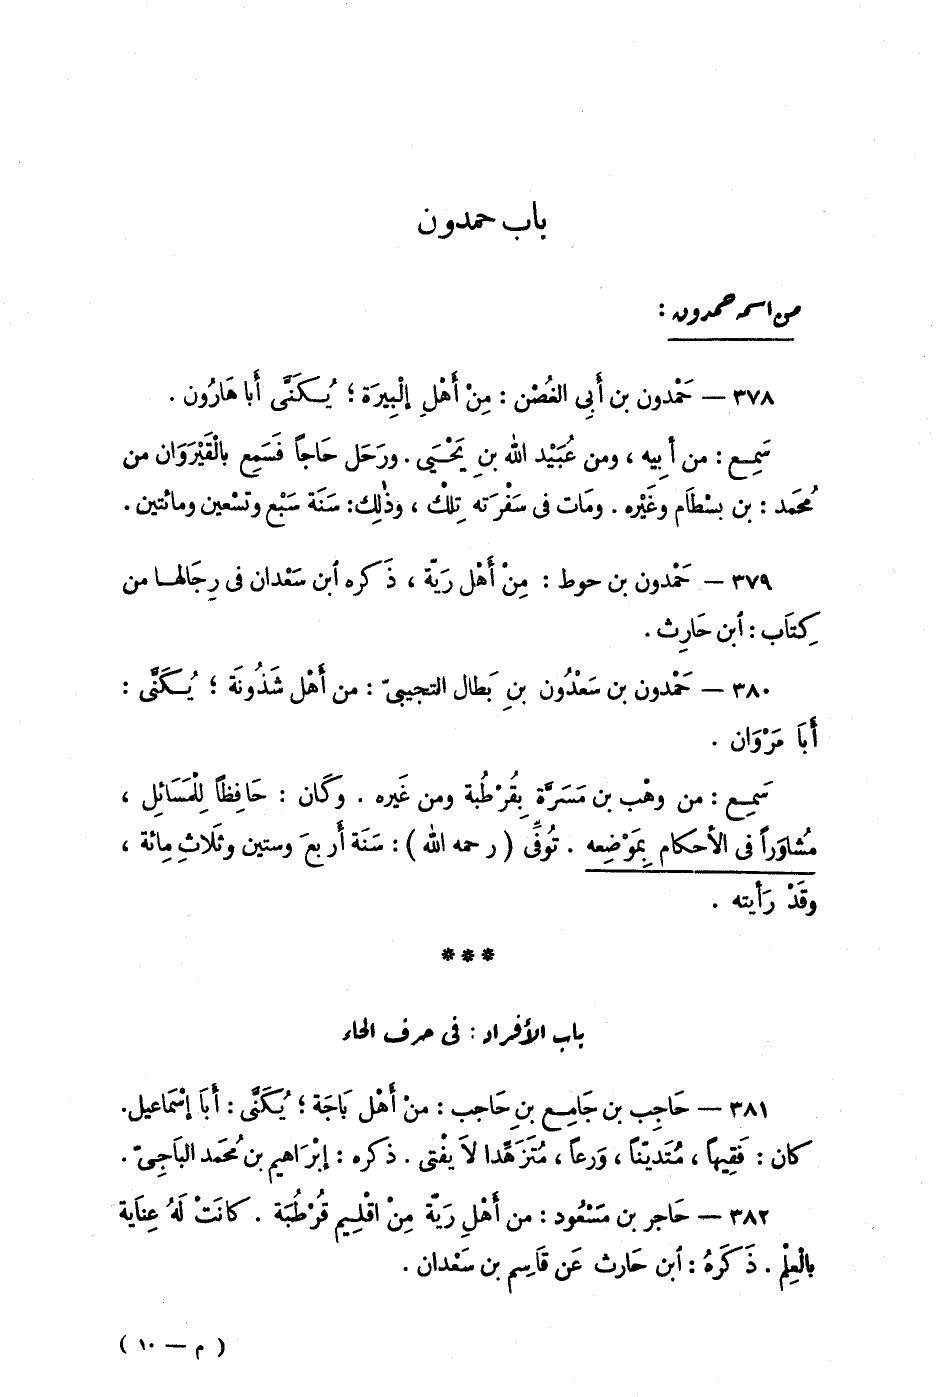 باب حمدون
من اسمه حمدون :
٣٧٨ — حَمْدون بن أَبى الغُصْن : مِنْ أَهْلِ إلْبِيرَة ؛ يُكَنَّى أَبا هَارُون .
سَمِع : من أبِيه ، ومن عُبَيْد الله بنِ يَحْيَى . ورَحَل حَاجاً فَسَمِع بالْقَيْرَوَان من
مُحَمَد : بن بسْطَام وغَيْره . ومَات فى سَفْرَته تِلْكَ ، وذٰلِك : سَنَة سَبْع وتسْعين ومائتين .
٣٧٩ — حَمْدون بن حوط : مِنْ أَهْل رَيّة ، ذَكره ابن سَعْدان فى رِجَالها من
كِتَاب : ابن حَارِث .
٣٨٠ — حَمْدون بن سَعْدُون بنِ بَطال التجيبىّ : من أَهْل شَذُونَة ؛ يُكَنَّى :
أَبَا مَرْوَان .
سَمِع : من وهْب بن مَسَرَّة بِقُرْطُبة ومن غَيره . وكَان : حَافِظاً لِلْمَسَائل ،
مُشاوَراً فى الأحكام بِمَوْضِعه . تُوفِّى ( رحمه الله ) : سَنَة أَربعَ وستين وثَلاثِ مِائة ،
وقَدْ رَأيته .
***
باب الأفراد : فى حرف الحاء
٣٨١ — حَاجِب بن جَامِع بنِ حَاجب : منْ أَهْل بَاجَة ؛ يُكَنَّى : أَبَا إسْمَاعيل .
كان : فَقِيهاً ، مُتَديّناً ، وَرعاً ، مُتَزَهِّدا لاَ يفْتى . ذكره : إبْرَاهيم بن مُحَمَد البَاجىّ .
٣٨٢ — حَاجر بن مَسْعُود : من أَهْلِ رَيّة مِنْ اقْلِيم قُرْطُبَة . كانَتْ لَهُ عِنَاية
بالْعِلْم . ذَكَرَهُ : ابن حَارث عَن قَاسِم بن سَعْدان .
( م — ١٠ )